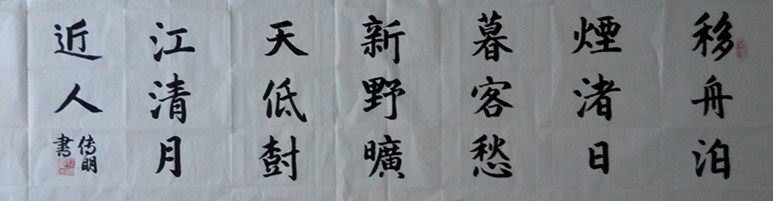 移舟泊
煙渚日
暮客愁
新野曠
天低樹
江清月
近人
傳明
書